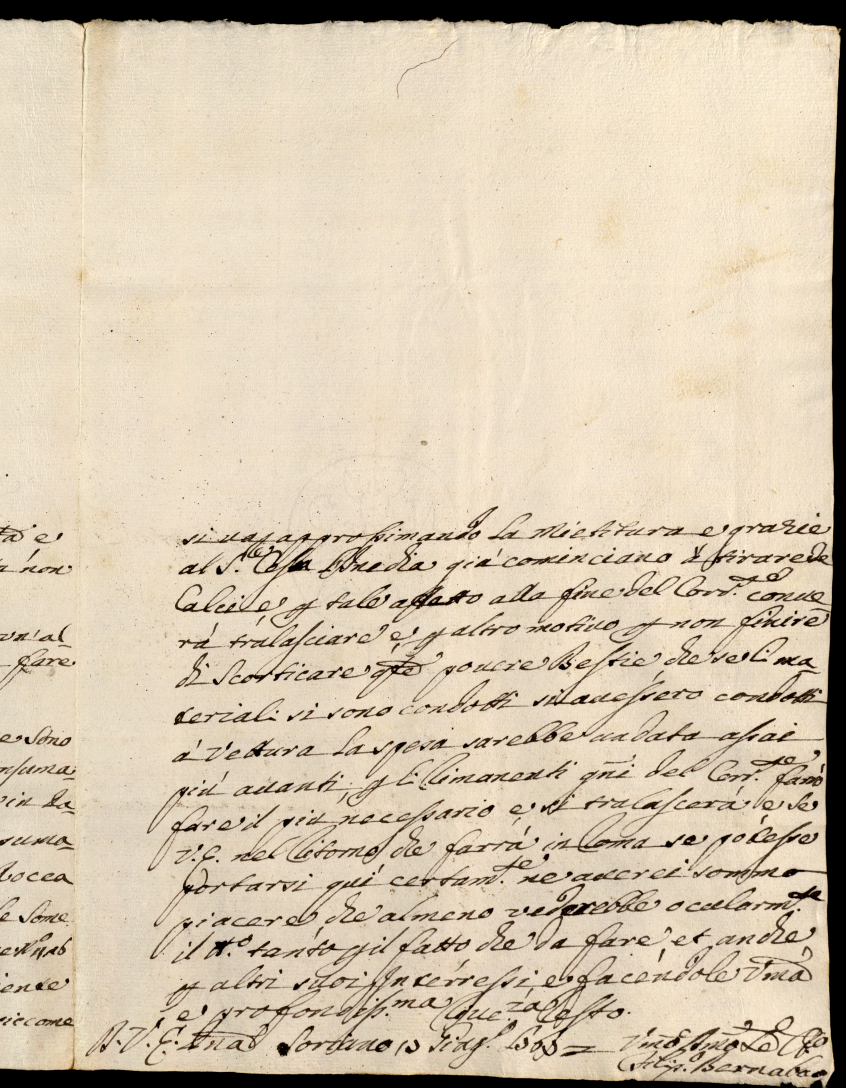 ta e
a non
un'al
fare
e sono
nsuma
in da
suma
Bocca
le some
iente
siccome
si va approssimando la mietitura e grazie
al S.r già cominciano à tirare de
Calci e p tale affatto alla fine del Corr.te conve
rà tralasciare e, p altro motivo p non finire
di scorticare q.te povere Bestie che se li ma
teriali si sono condotti si avessero condotti
à Vettura la spesa sarebbe andata assai
più avanti, p li rimanenti g.ni del Corr.te farò
fare il più necessario e si tralascerà e se
V.E. nel ritorno che farrà in Roma se potesse
portarsi qui certam.te ne averei sommo
piacere che almeno vederebbe ocularm.te
il tanto p il fatto che da fare et anche
p altri suoi Interressi, e facendole um.a
e profondiss.ma river.za resto.
D. V. E. Soriano 13 Giug.
Bernabao